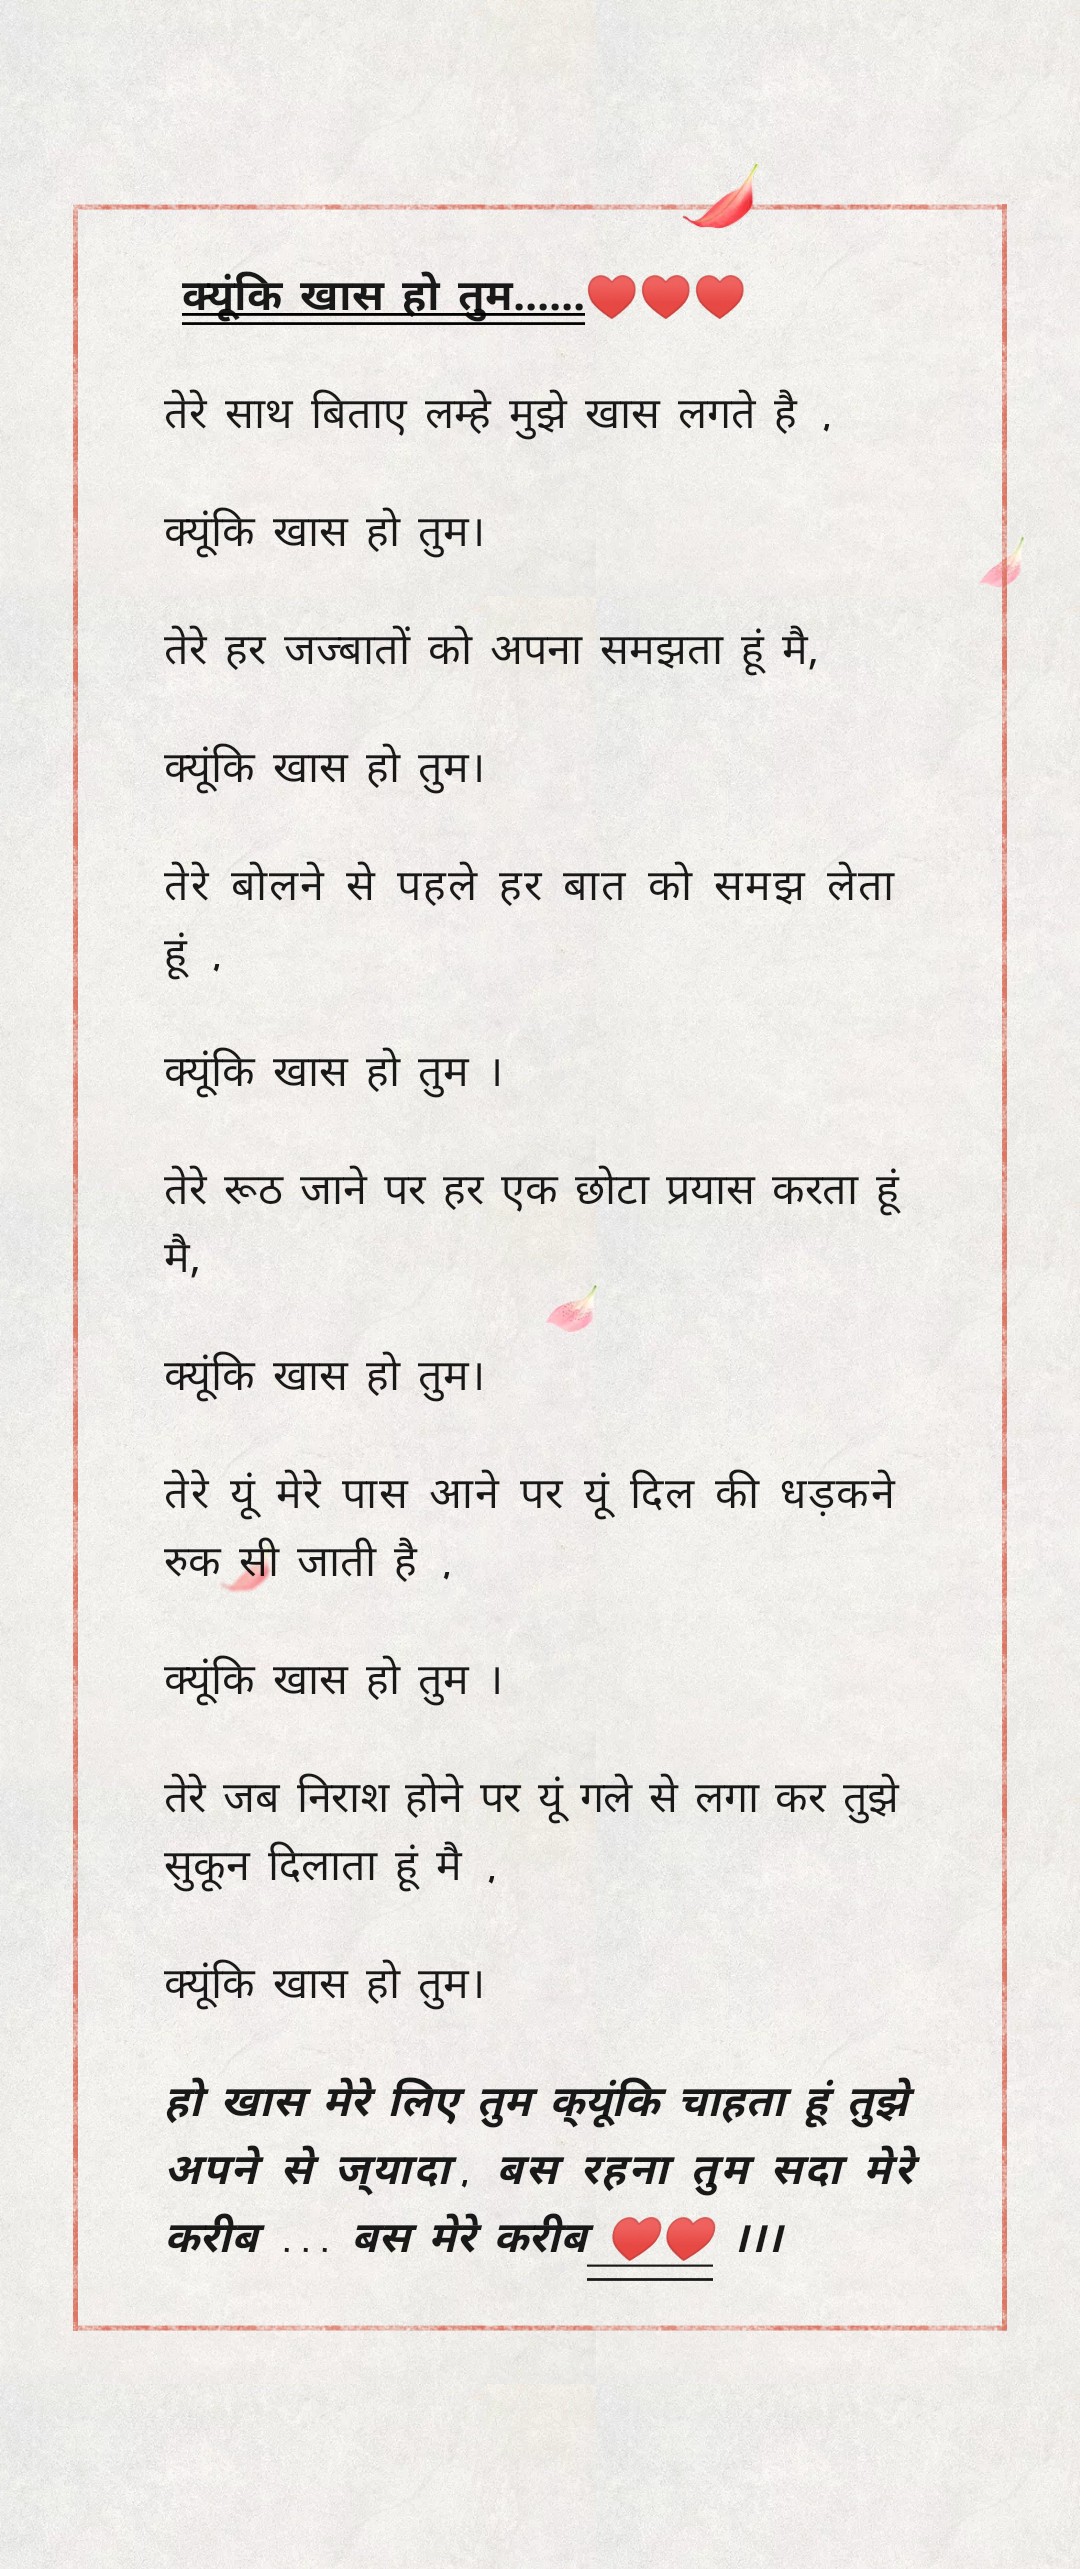 क्यूंकि खास हो तुम......❤️❤️❤️
तेरे साथ बिताए लम्हे मुझे खास लगते है ,
क्यूंकि खास हो तुम।
तेरे हर जज्बातों को अपना समझता हूं मै,
क्यूंकि खास हो तुम।
तेरे बोलने से पहले हर बात को समझ लेता
हूं ,
क्यूंकि खास हो तुम ।
तेरे रूठ जाने पर हर एक छोटा प्रयास करता हूं
मै,
क्यूंकि खास हो तुम।
तेरे यूं मेरे पास आने पर यूं दिल की धड़कने
रुक सी जाती है ,
क्यूंकि खास हो तुम ।
तेरे जब निराश होने पर यूं गले से लगा कर तुझे
सुकून दिलाता हूं मै ,
क्यूंकि खास हो तुम।
हो खास मेरे लिए तुम क्यूंकि चाहता हूं तुझे
अपने से ज्यादा, बस रहना तुम सदा मेरे
करीब ... बस मेरे करीब ❤️❤️ ।।।